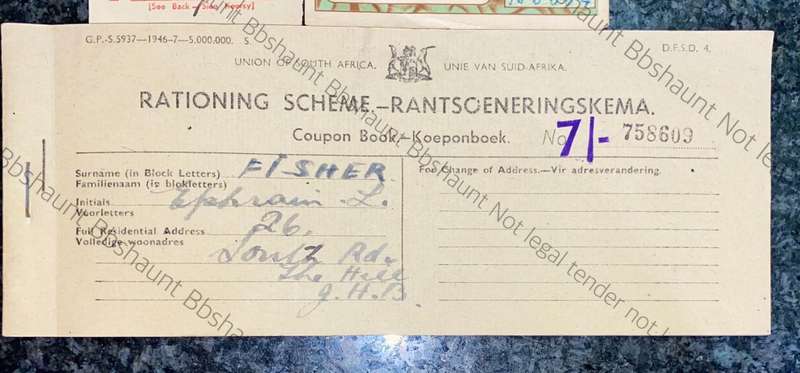 [See Back—Sien Keersy]
G.P.-S.5937—1946-7—5,000,000. S.
D.F.S.D. 4.
UNION OF SOUTH AFRICA. UNIE VAN SUID-AFRIKA.
RATIONING SCHEME.—RANTSOENERINGSKEMA.
Coupon Book.—Koeponboek. No. 758609
7/-
Surname (in Block Letters) FISHER
Familienaam (in blokletters)
Initials Ephraim L.
Voorletters
Full Residential Address 26,
Volledige woonadres
Rd.
The Hill
J.H.B.
For Change of Address.—Vir adresverandering.
Bbshaunt Not legal tender